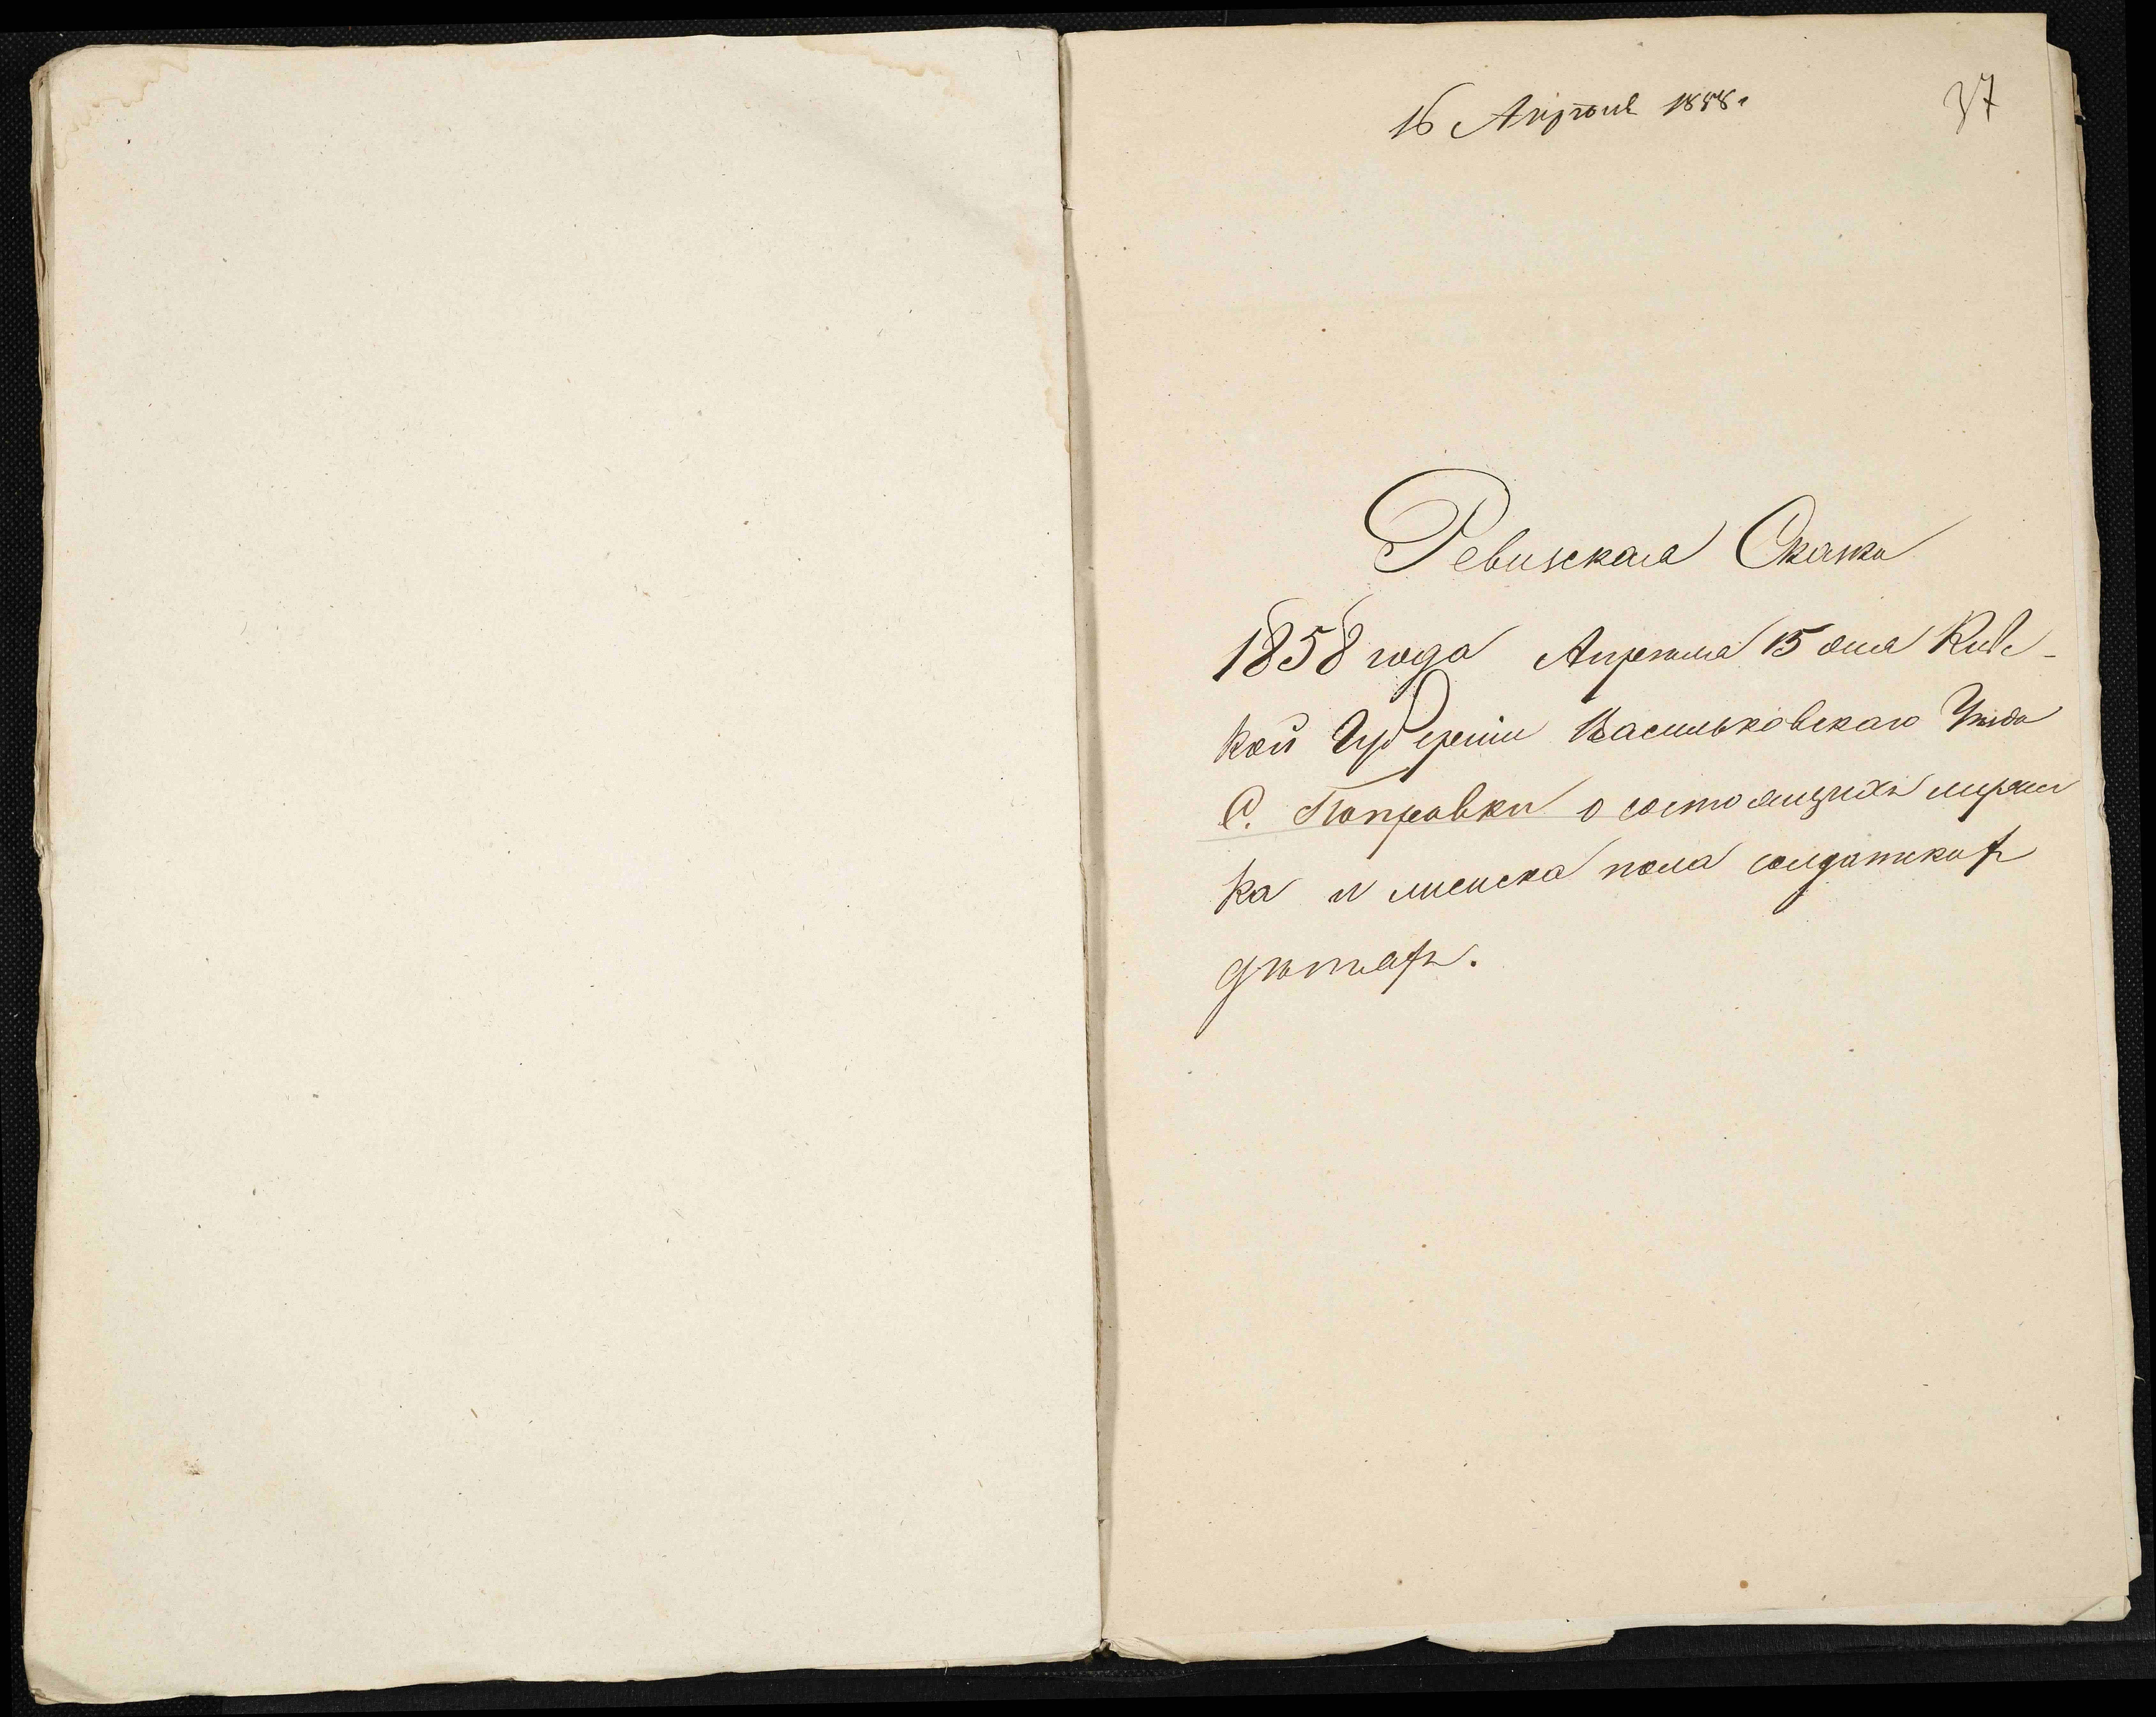 16 Апрѣля 1858.
37
Ревизская Сказка
1858 года Апреля 15 дня Киевс-
кой Губерніи Васильковскаго Уезда
С. Поправки о состоящихъ мужес
ка и женска пола солдатскихъ
детяхъ.